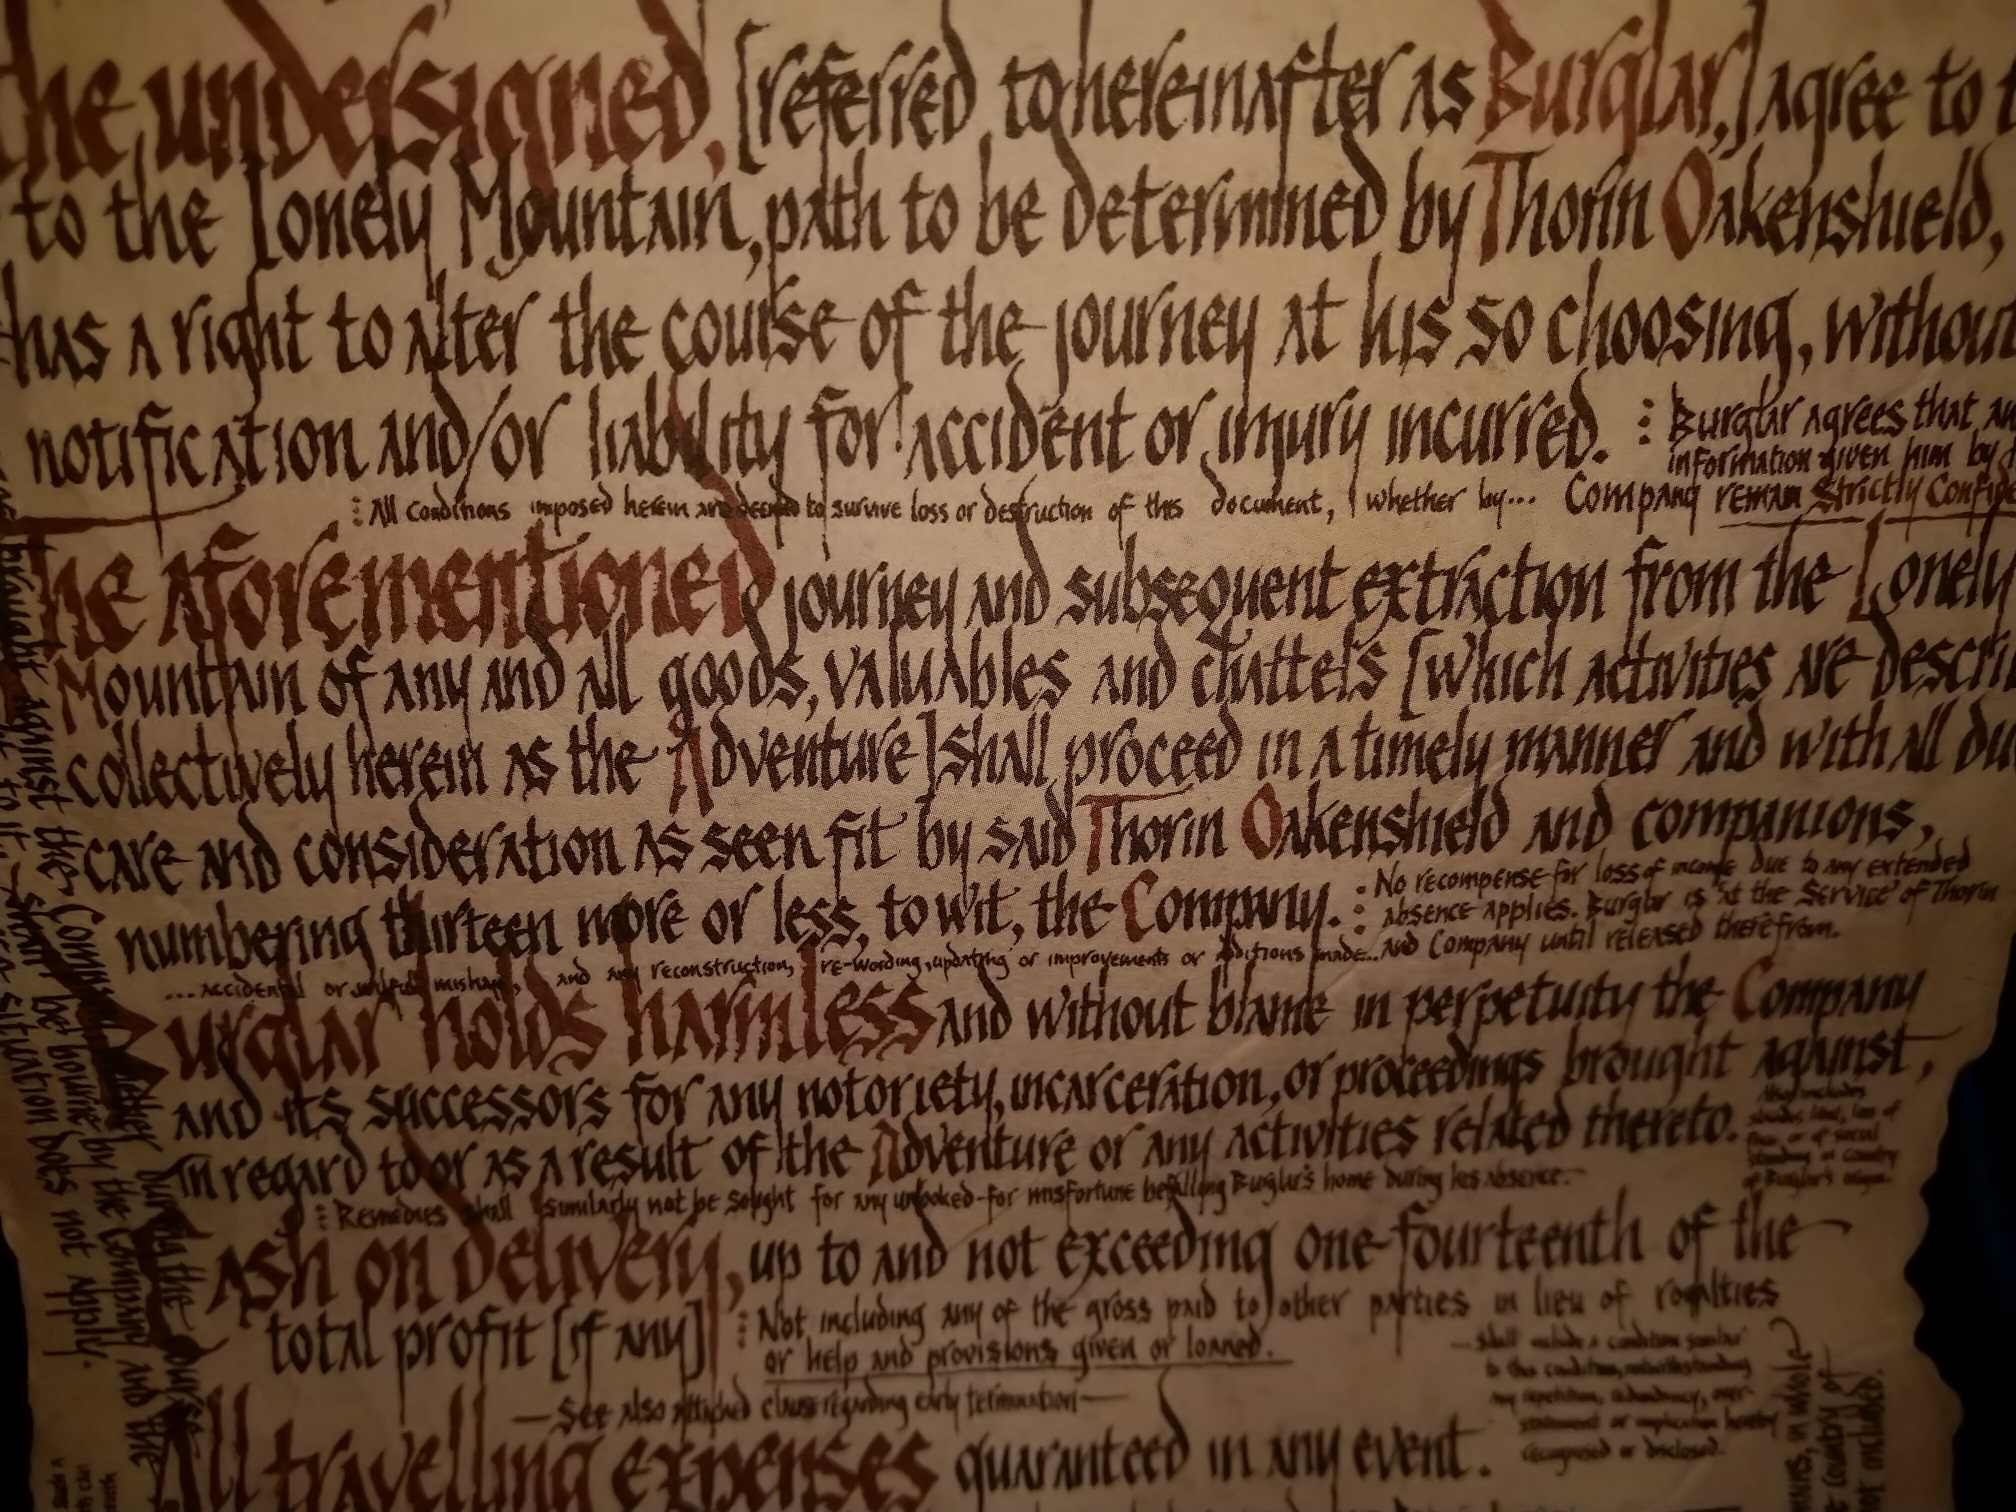 the undersigned, [referred to hereinafter as Burglar,] agree to
to the Lonely Mountain, path to be determined by Thorin Oakenshield,
has a right to alter the course of the journey at his so choosing, without
notification and/or liability for accident or injury incurred.
⋮ Burglar agrees that
information given him by
Company remain Strictly
⋮ All conditions imposed herein are deemed to survive loss or destruction of this document, whether by...
The aforementioned journey and subsequent extraction from the Lonely
Mountain of any and all goods, valuables and chattels [which activities are
collectively herein as the Adventure] shall proceed in a timely manner and with all
care and consideration as seen fit by said Thorin Oakenshield and companions,
numbering thirteen more or less, to wit, the Company.
⋮ No recompense for loss of income due to any extended
absence applies. Burglar is 'at the Service' of Thorin
and Company until released therefrom.
...accidental or wilful mishap, and any reconstruction, re-wording, updating or improvements or additions made...
Burglar holds harmless and without blame in perpetuity the Company
and its successors for any notoriety, incarceration, or proceedings brought against,
in regard to or as a result of the Adventure or any activities related thereto.
Also includes
slander, libel, loss of
face or of social
standing in country
of Burglar's origin.
⋮ Remedies shall similarly not be sought for any unlooked-for misfortune befalling Burglar's home during his absence.
Cash on delivery, up to and not exceeding one fourteenth of the
total profit [if any]
⋮ Not including any of the gross paid to other parties in lieu of royalties
or help and provisions given or loaned.
...Shall include a condition similar
to this condition, notwithstanding
any repetition, redundancy, over-
statement or implication hereby
recognised or disclosed.
—See also attached clause regarding early termination—
All travelling expenses guaranteed in any event.
brought against the Company
shall be borne by the Company and the
situation does not apply.
during the course
in whole
country of
not included.